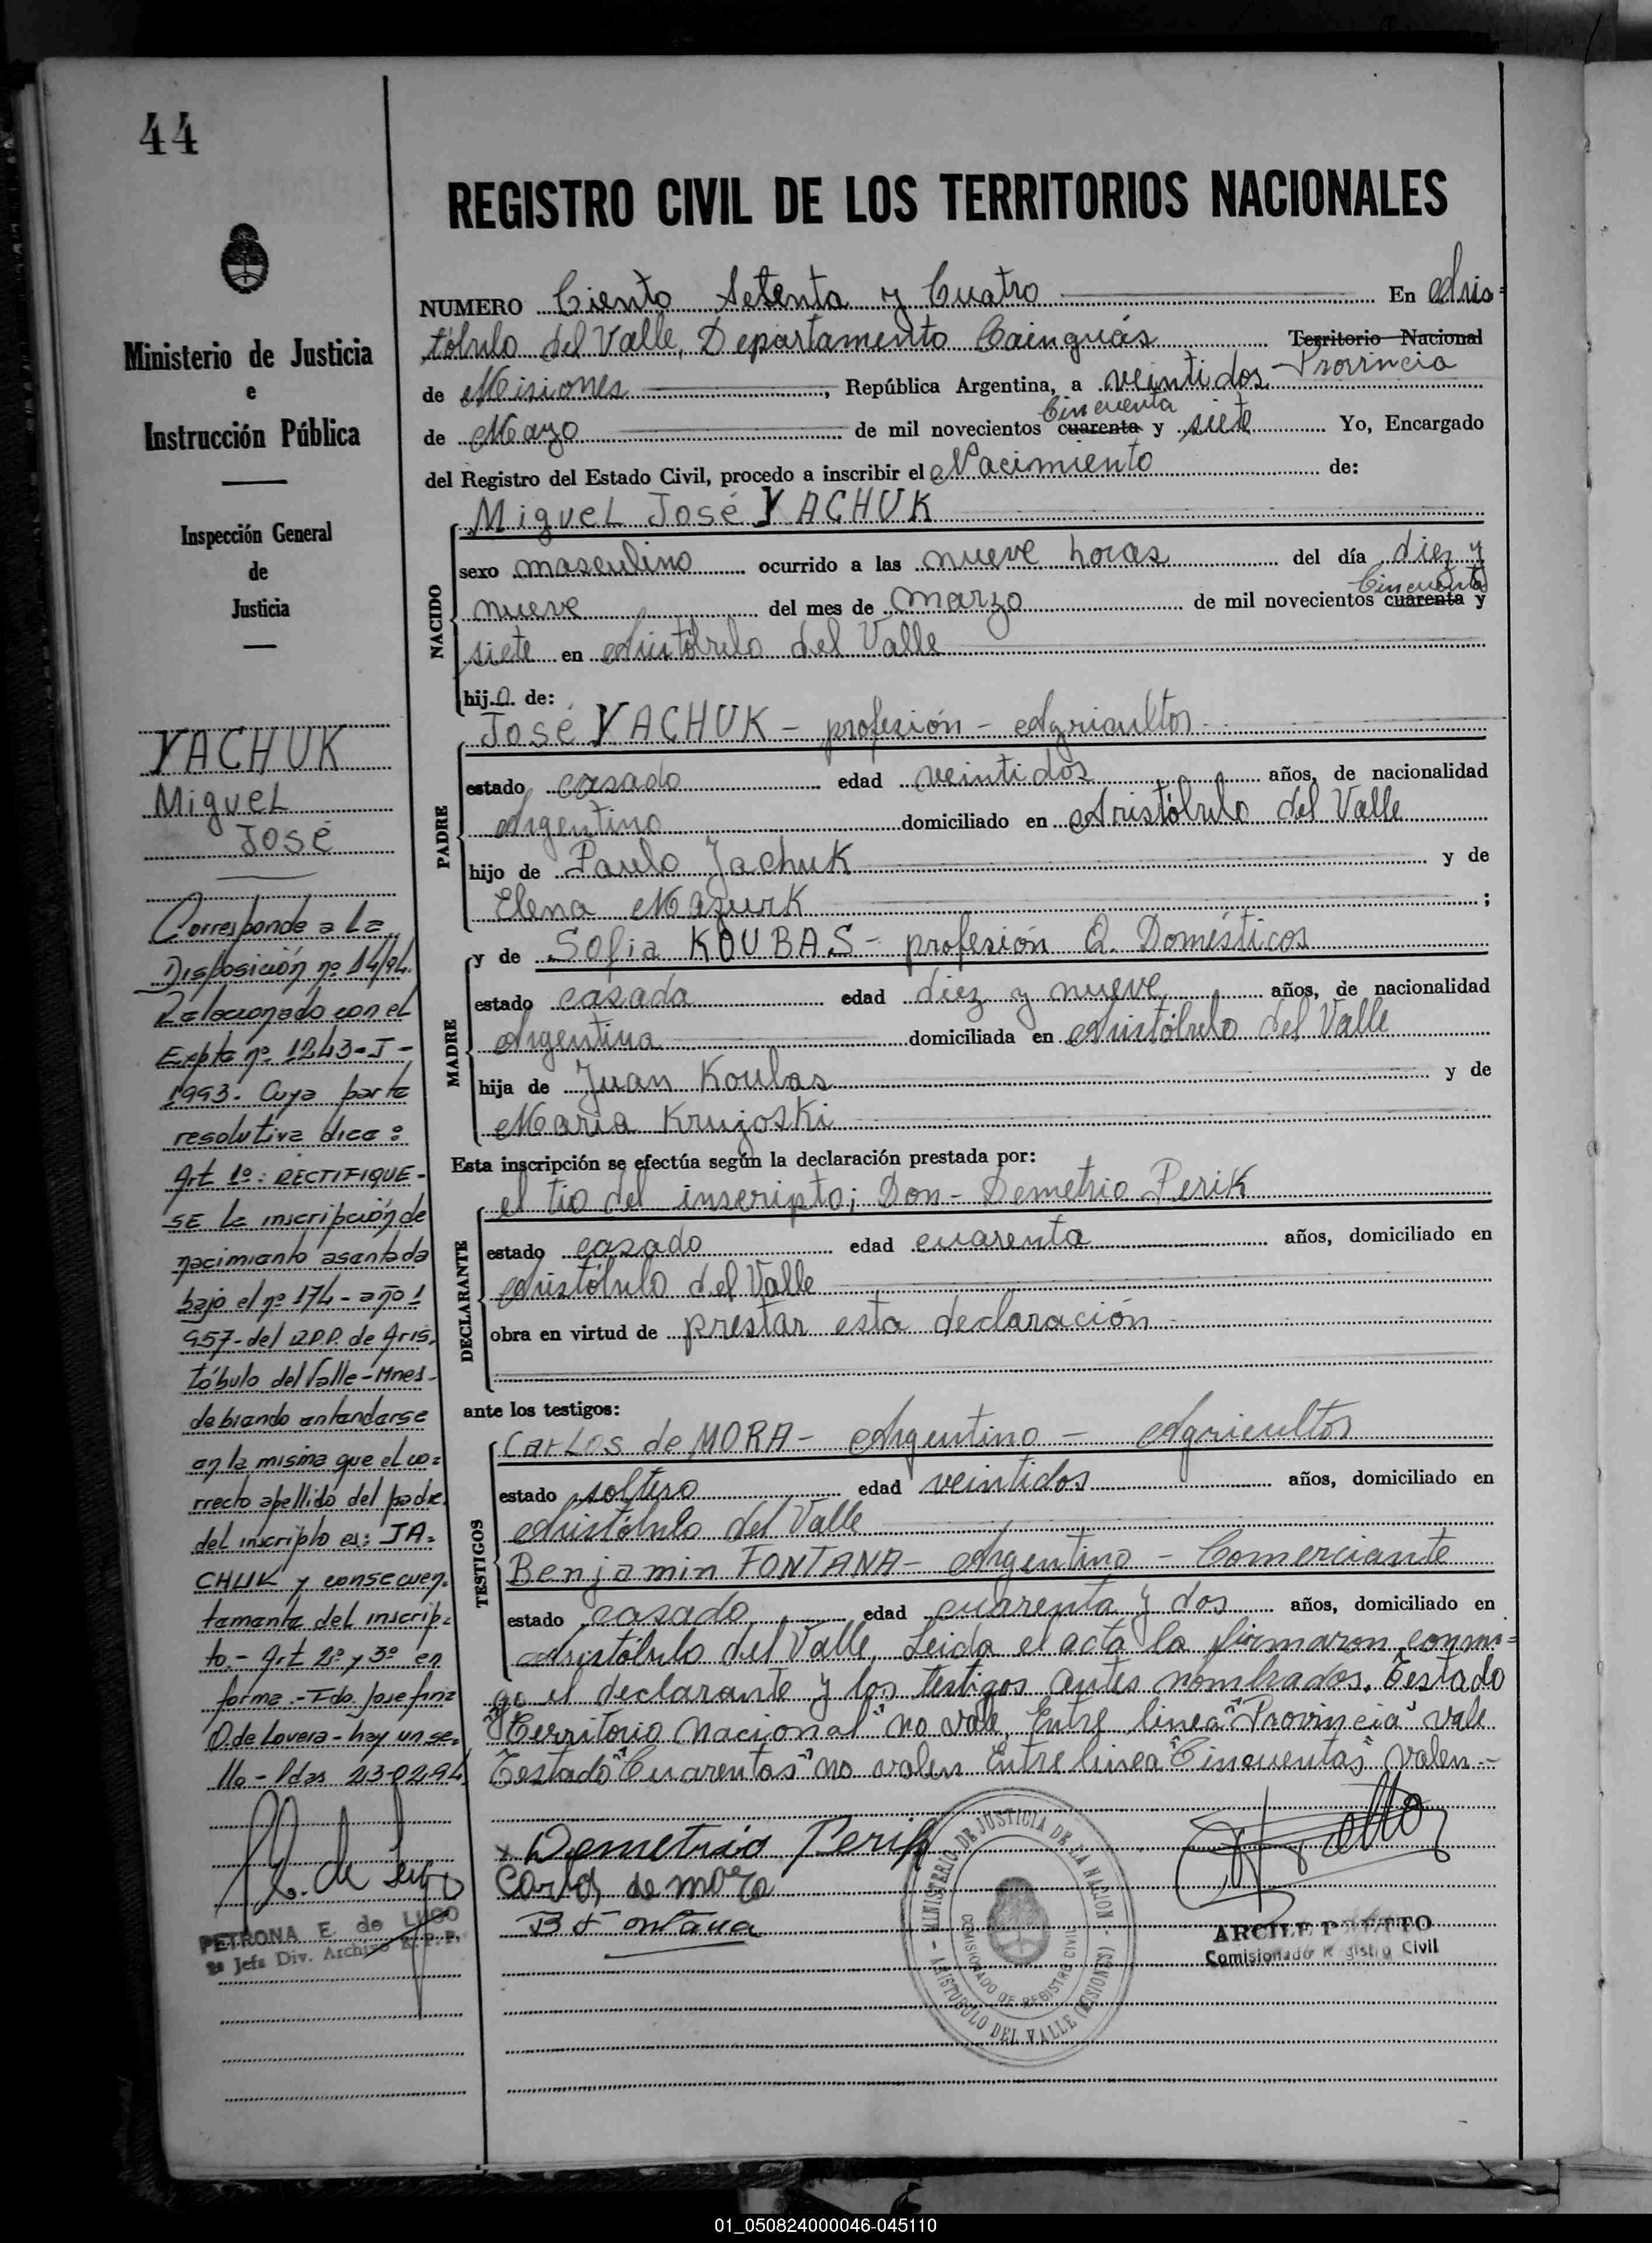 44
REGISTRO CIVIL DE LOS TERRITORIOS NACIONALES
Ministerio de Justicia
e
Instrucción Pública
Inspección General
de
Justicia
YACHUK
Miguel
José
Corresponde a la
Disposición nº 14/94.
Relacionado con el
Expte nº 1243-J-
1993. Cuya parte
resolutiva dice:
Art 1º: RECTIFIQUE-
SE la inscripción de
nacimiento asentada
bajo el nº 174- año 1
957- del R.P.P. de Aris,
tóbulo del Valle-Mnes-
debiendo entenderse
en la misma que el co=
rrecto apellido del padre
del inscripto es: JA=
CHUK y consecuen,
temente del inscrip=
to.- Art 2º y 3º en
forma.- Fdo. Josefina
O. de Lovera- hay un se,
llo- Pdas 23-02-94
PETRONA E. de LUGO
2ª Jefa Div. Archivo R.P.P.
NUMERO Ciento Setenta y Cuatro En Aris=
tóbulo del Valle, Departamento Cainguás Territorio Nacional
Provincia
de Misiones, República Argentina, a veintidos
Cincuenta
de Mayo de mil novecientos cuarenta y siete Yo, Encargado
del Registro del Estado Civil, procedo a inscribir el Nacimiento de:
NACIDO
Miguel José YACHUK
sexo masculino ocurrido a las nueve horas del día diez y
Cincuenta
nueve del mes de marzo de mil novecientos cuarenta y
siete en Aristóbulo del Valle
hijo de:
PADRE
José YACHUK - profesión - Agricultor
estado casado edad veintidos años, de nacionalidad
Argentino domiciliado en Aristóbulo del Valle
hijo de Paulo Jachuk y de
Elena Mazurk ;
MADRE
y de Sofia KOUBAS - profesión Q. Domésticos
estado casada edad diez y nueve años, de nacionalidad
Argentina domiciliada en Aristóbulo del Valle
hija de Juan Koubas y de
Maria Krujoski
Esta inscripción se efectúa según la declaración prestada por:
DECLARANTE
el tio del inscripto; Don - Demetrio Perik
estado casado edad cuarenta años, domiciliado en
Aristóbulo del Valle
obra en virtud de prestar esta declaración
ante los testigos:
TESTIGOS
Carlos de MORA - Argentino - Agricultor
estado soltero edad veintidos años, domiciliado en
Aristóbulo del Valle
Benjamin FONTANA - Argentino - Comerciante
estado casado edad cuarenta y dos años, domiciliado en
Aristóbulo del Valle, Leida el acta la firmaron conmi=
go el declarante y los testigos antes nombrados. Testado
"Territorio Nacional" no vale, Entre linea "Provincia" vale.
Testado "Cuarentas" no valen Entre linea "Cincuentas" valen.-
Demetrio Perik
Carlos de mora
B Fontana
MINISTERIO DE JUSTICIA DE LA NACION
COMISIONADO DE REGISTRO CIVIL
ARISTOBULO DEL VALLE (MISIONES)
Comisionado Registro Civil
01_050824000046-045110